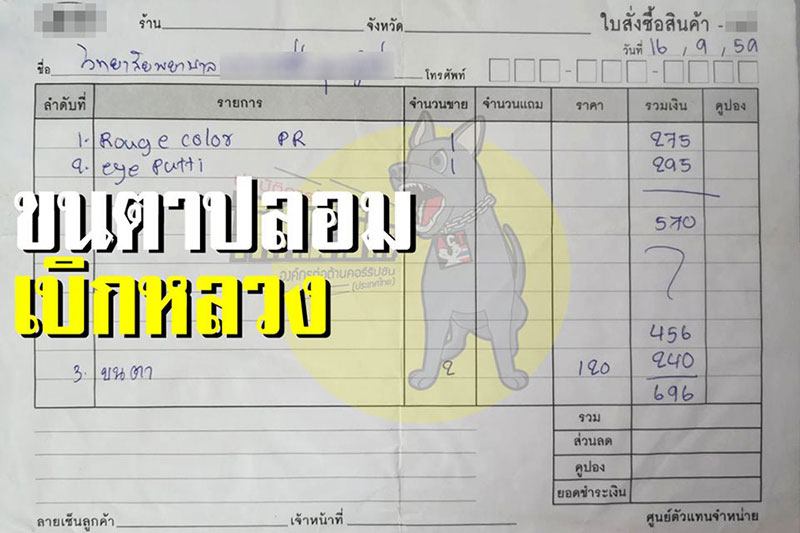 ร้าน จังหวัด ใบสั่งซื้อสินค้า -
วันที่ 16 , 9 , 59
ชื่อ วิทยาลัยพยาบาล โทรศัพท์
ลำดับที่ รายการ จำนวนขาย จำนวนแถม ราคา รวมเงิน คูปอง
1. Rouge color PR 1 275
2. eye Putti 1 295
ขนตาปลอม
570
องค์กรต่อต้านคอร์รัปชัน
(ประเทศไทย)
เบิกหลวง
456
3. ขนตา 2 120 240
696
รวม
ส่วนลด
คูปอง
ยอดชำระเงิน
ลายเซ็นลูกค้า เจ้าหน้าที่ ศูนย์ตัวแทนจำหน่าย